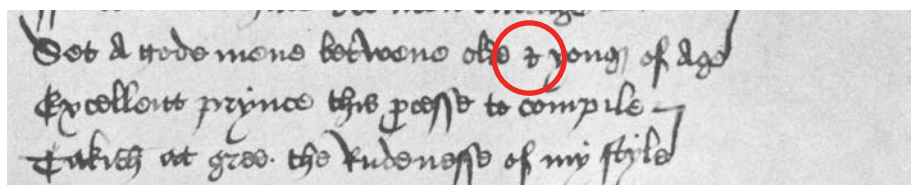 Set a gode mene betwene olde ⁊ yong of age
Excellent prynce this ꝓcesse to compile
Takith at gree the Rudenesse of my style